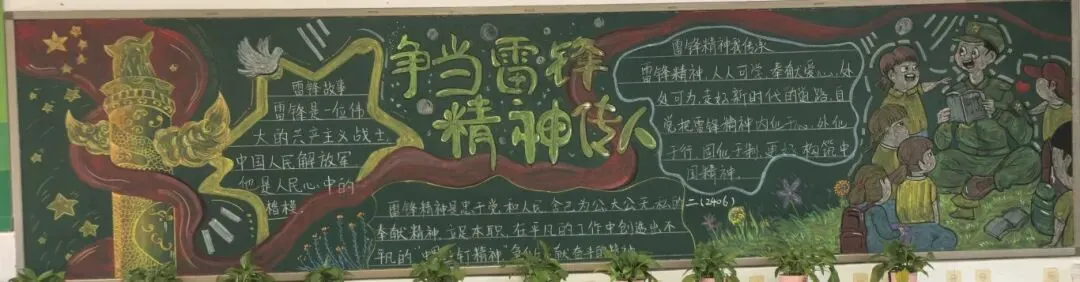 争当雷锋
精神传人
雷锋故事
雷锋是一位伟
大的共产主义战士
中国人民解放军
他是人民心中的
楷模.
雷锋精神我传承
雷锋精神,人人可学,奉献爱心,处
处可为,走新时代的道路,自
觉把雷锋精神内化于心、外化
于行、固化于制,更好构筑中
国精神.
雷锋精神是忠于党和人民 舍己为公,大公无私的
奉献精神 立足本职、在平凡的工作中创造出不
平凡的 钉精神
二(2406)